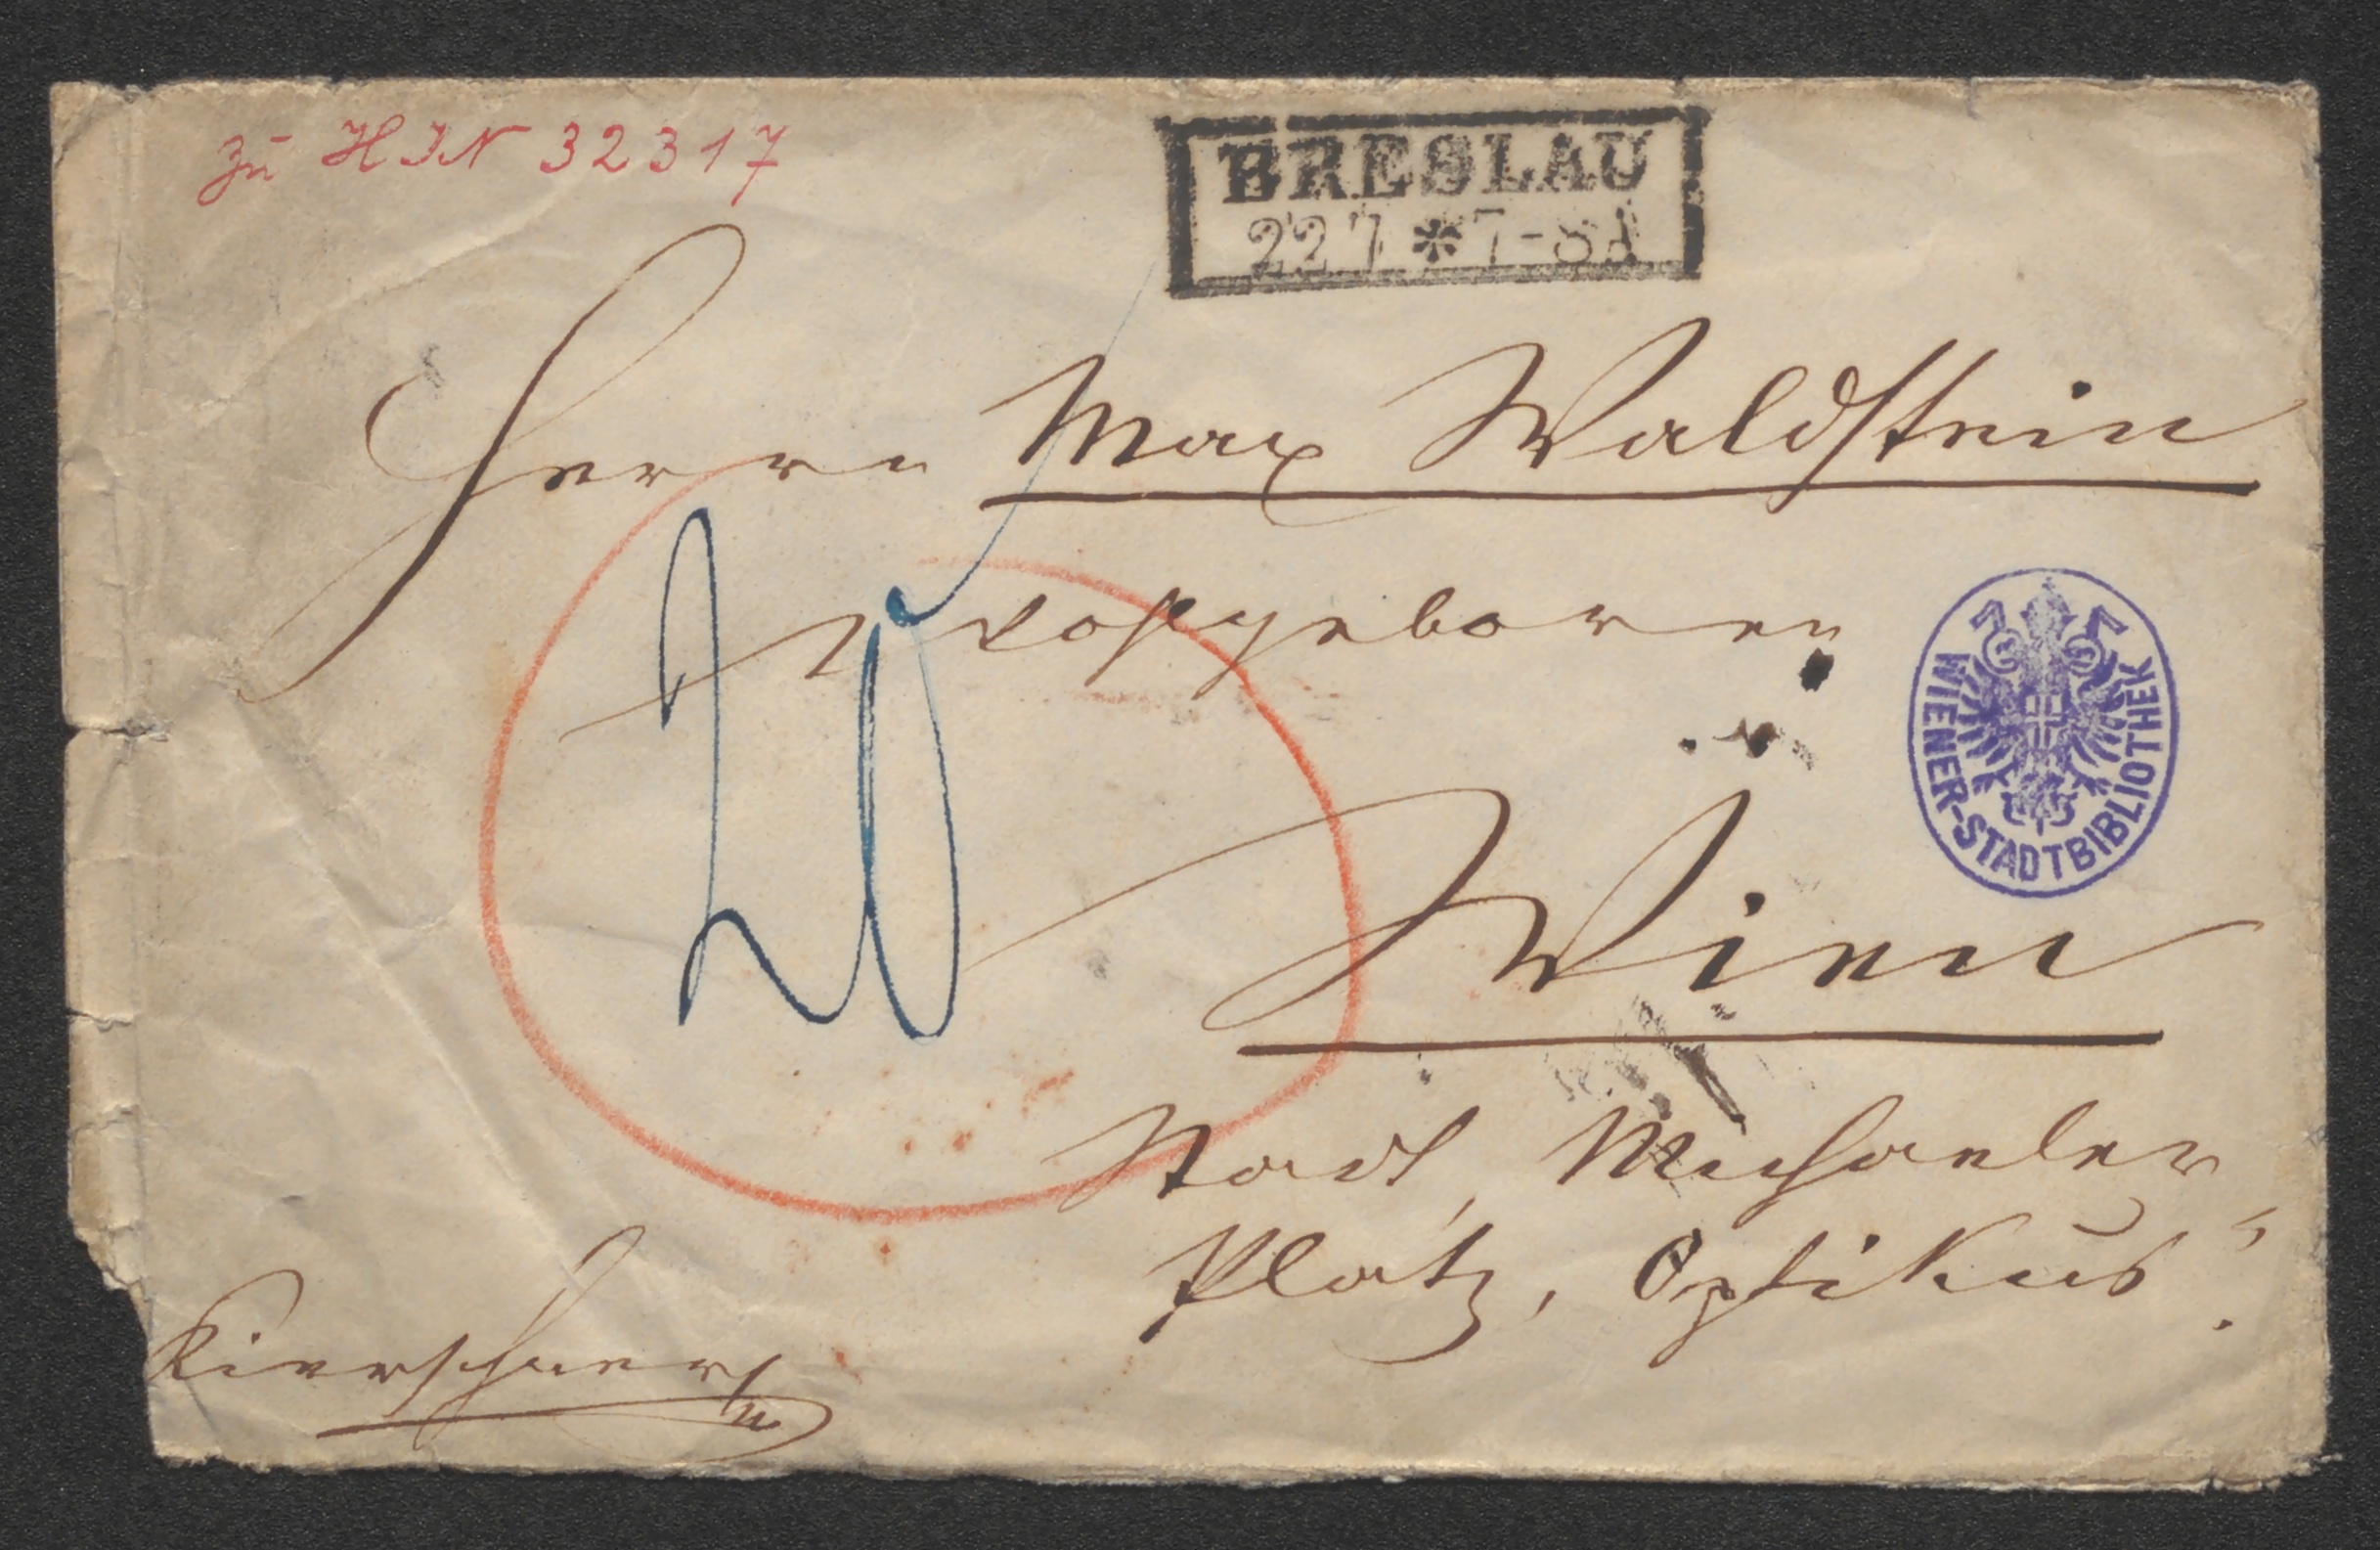 zu HIN 32317
BRESLAU
22 7 * 7-8 A
Herrn Max Waldstein
Wohlgeboren
20
WIENER-STADTBIBLIOTHEK
Wien
Stadt, Michaeler
Platz, Optikus.